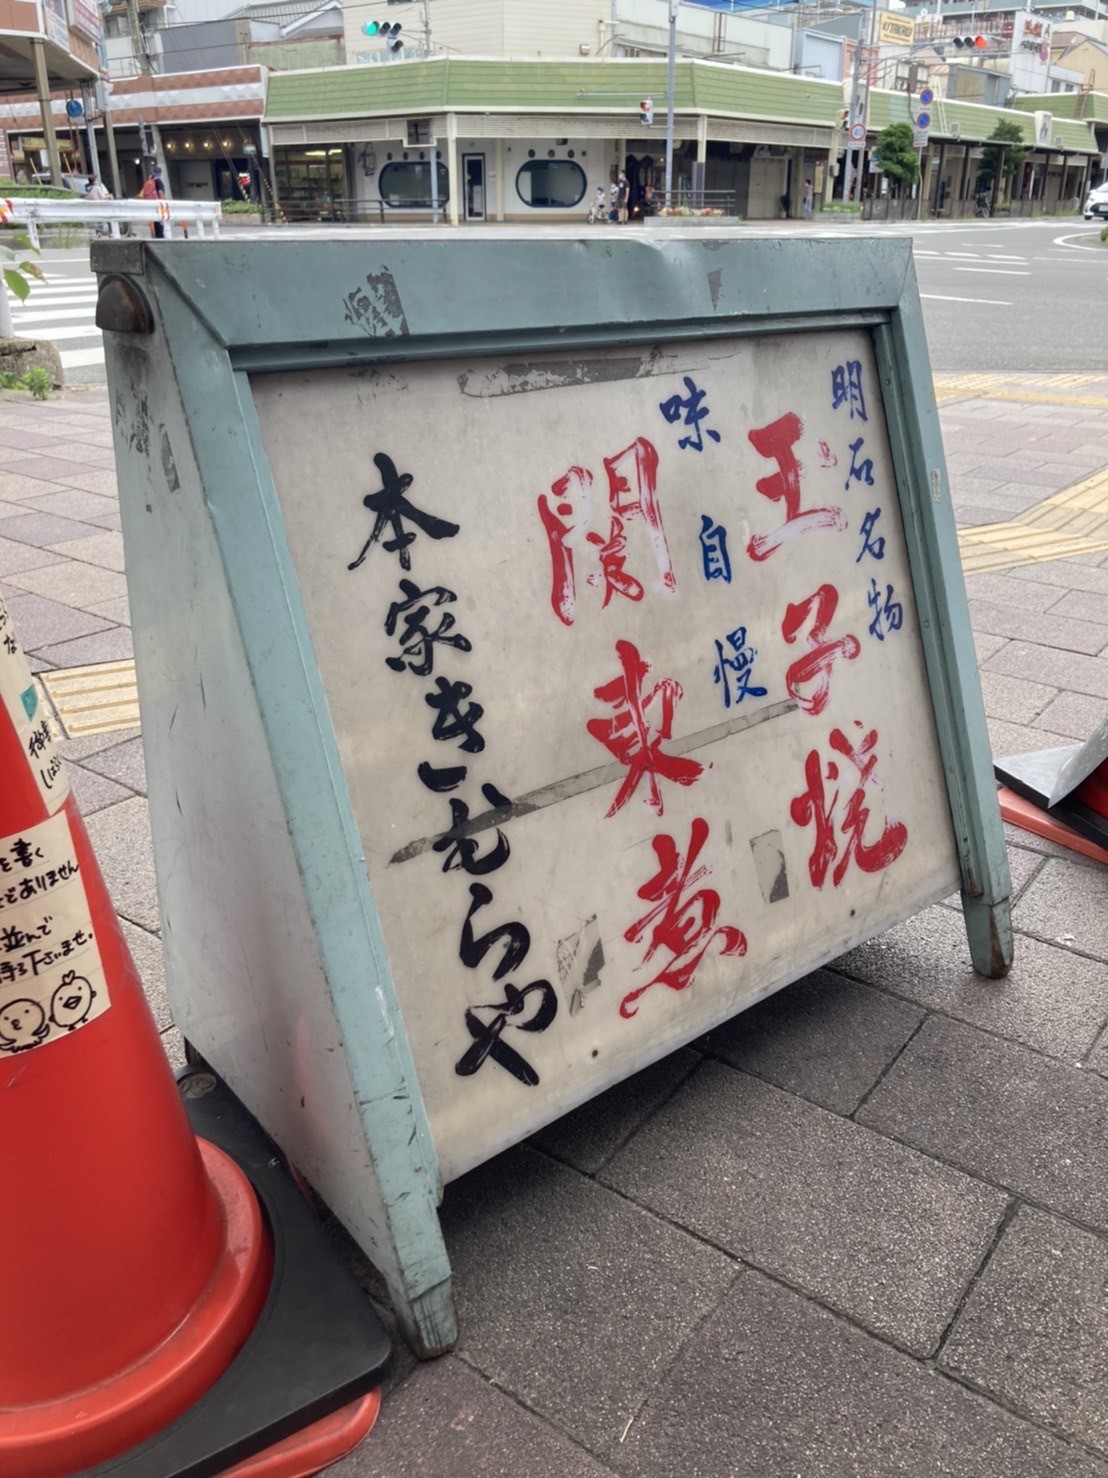 明石名物
玉子焼
味自慢
関東煮
本家きむらや
を書く
どありません
並んで
待ち下さいませ。